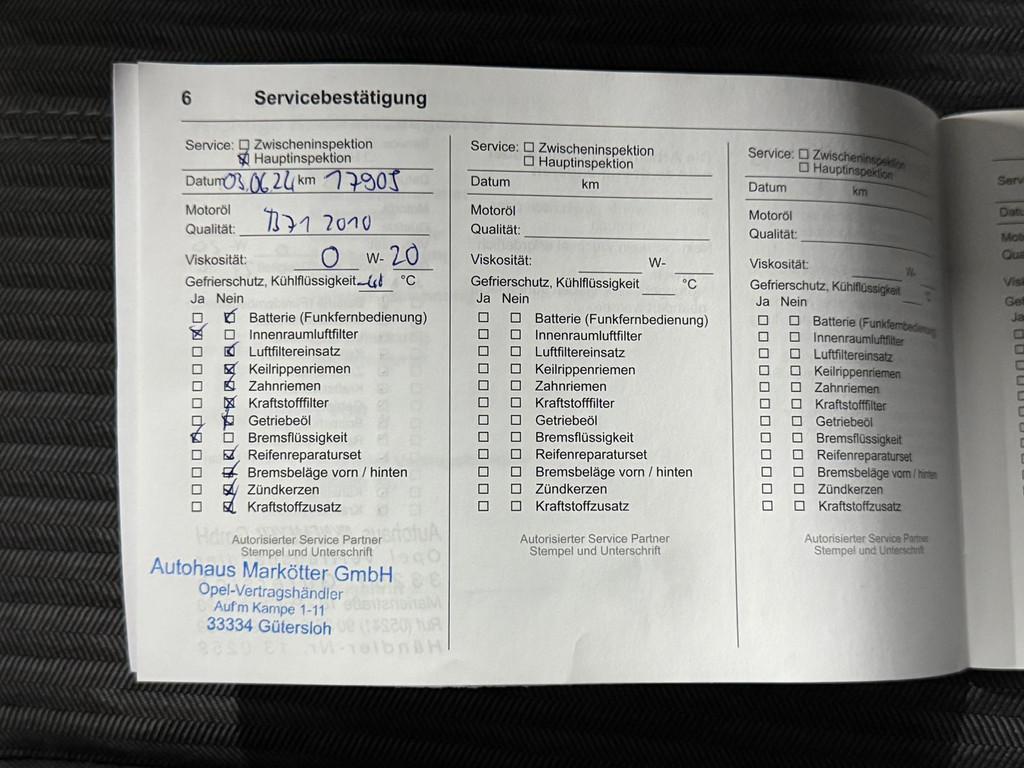 6 Servicebestätigung
Service: ☐ Zwischeninspektion
☒ Hauptinspektion
Datum 03.06.24 km 17905
Motoröl
Qualität: B71 2010
Viskosität: 0 W- 20
Gefrierschutz, Kühlflüssigkeit °C
Ja Nein
☐ ☒ Batterie (Funkfernbedienung)
☒ ☐ Innenraumluftfilter
☐ ☒ Luftfiltereinsatz
☐ ☒ Keilrippenriemen
☐ ☒ Zahnriemen
☐ ☒ Kraftstofffilter
☐ ☒ Getriebeöl
☒ ☐ Bremsflüssigkeit
☐ ☒ Reifenreparaturset
☐ ☒ Bremsbeläge vorn / hinten
☐ ☒ Zündkerzen
☐ ☒ Kraftstoffzusatz
Autorisierter Service Partner
Stempel und Unterschrift
Autohaus Markötter GmbH
Opel-Vertragshändler
Auf'm Kampe 1-11
33334 Gütersloh
Service: ☐ Zwischeninspektion
☐ Hauptinspektion
Datum km
Motoröl
Qualität:
Viskosität: W-
Gefrierschutz, Kühlflüssigkeit °C
Ja Nein
☐ ☐ Batterie (Funkfernbedienung)
☐ ☐ Innenraumluftfilter
☐ ☐ Luftfiltereinsatz
☐ ☐ Keilrippenriemen
☐ ☐ Zahnriemen
☐ ☐ Kraftstofffilter
☐ ☐ Getriebeöl
☐ ☐ Bremsflüssigkeit
☐ ☐ Reifenreparaturset
☐ ☐ Bremsbeläge vorn / hinten
☐ ☐ Zündkerzen
☐ ☐ Kraftstoffzusatz
Autorisierter Service Partner
Stempel und Unterschrift
Service: ☐ Zwischeninspektion
☐ Hauptinspektion
Datum km
Motoröl
Qualität:
Viskosität: W-
Gefrierschutz, Kühlflüssigkeit °C
Ja Nein
☐ ☐ Batterie (Funkfernbedienung)
☐ ☐ Innenraumluftfilter
☐ ☐ Luftfiltereinsatz
☐ ☐ Keilrippenriemen
☐ ☐ Zahnriemen
☐ ☐ Kraftstofffilter
☐ ☐ Getriebeöl
☐ ☐ Bremsflüssigkeit
☐ ☐ Reifenreparaturset
☐ ☐ Bremsbeläge vorn / hinten
☐ ☐ Zündkerzen
☐ ☐ Kraftstoffzusatz
Autorisierter Service Partner
Stempel und Unterschrift